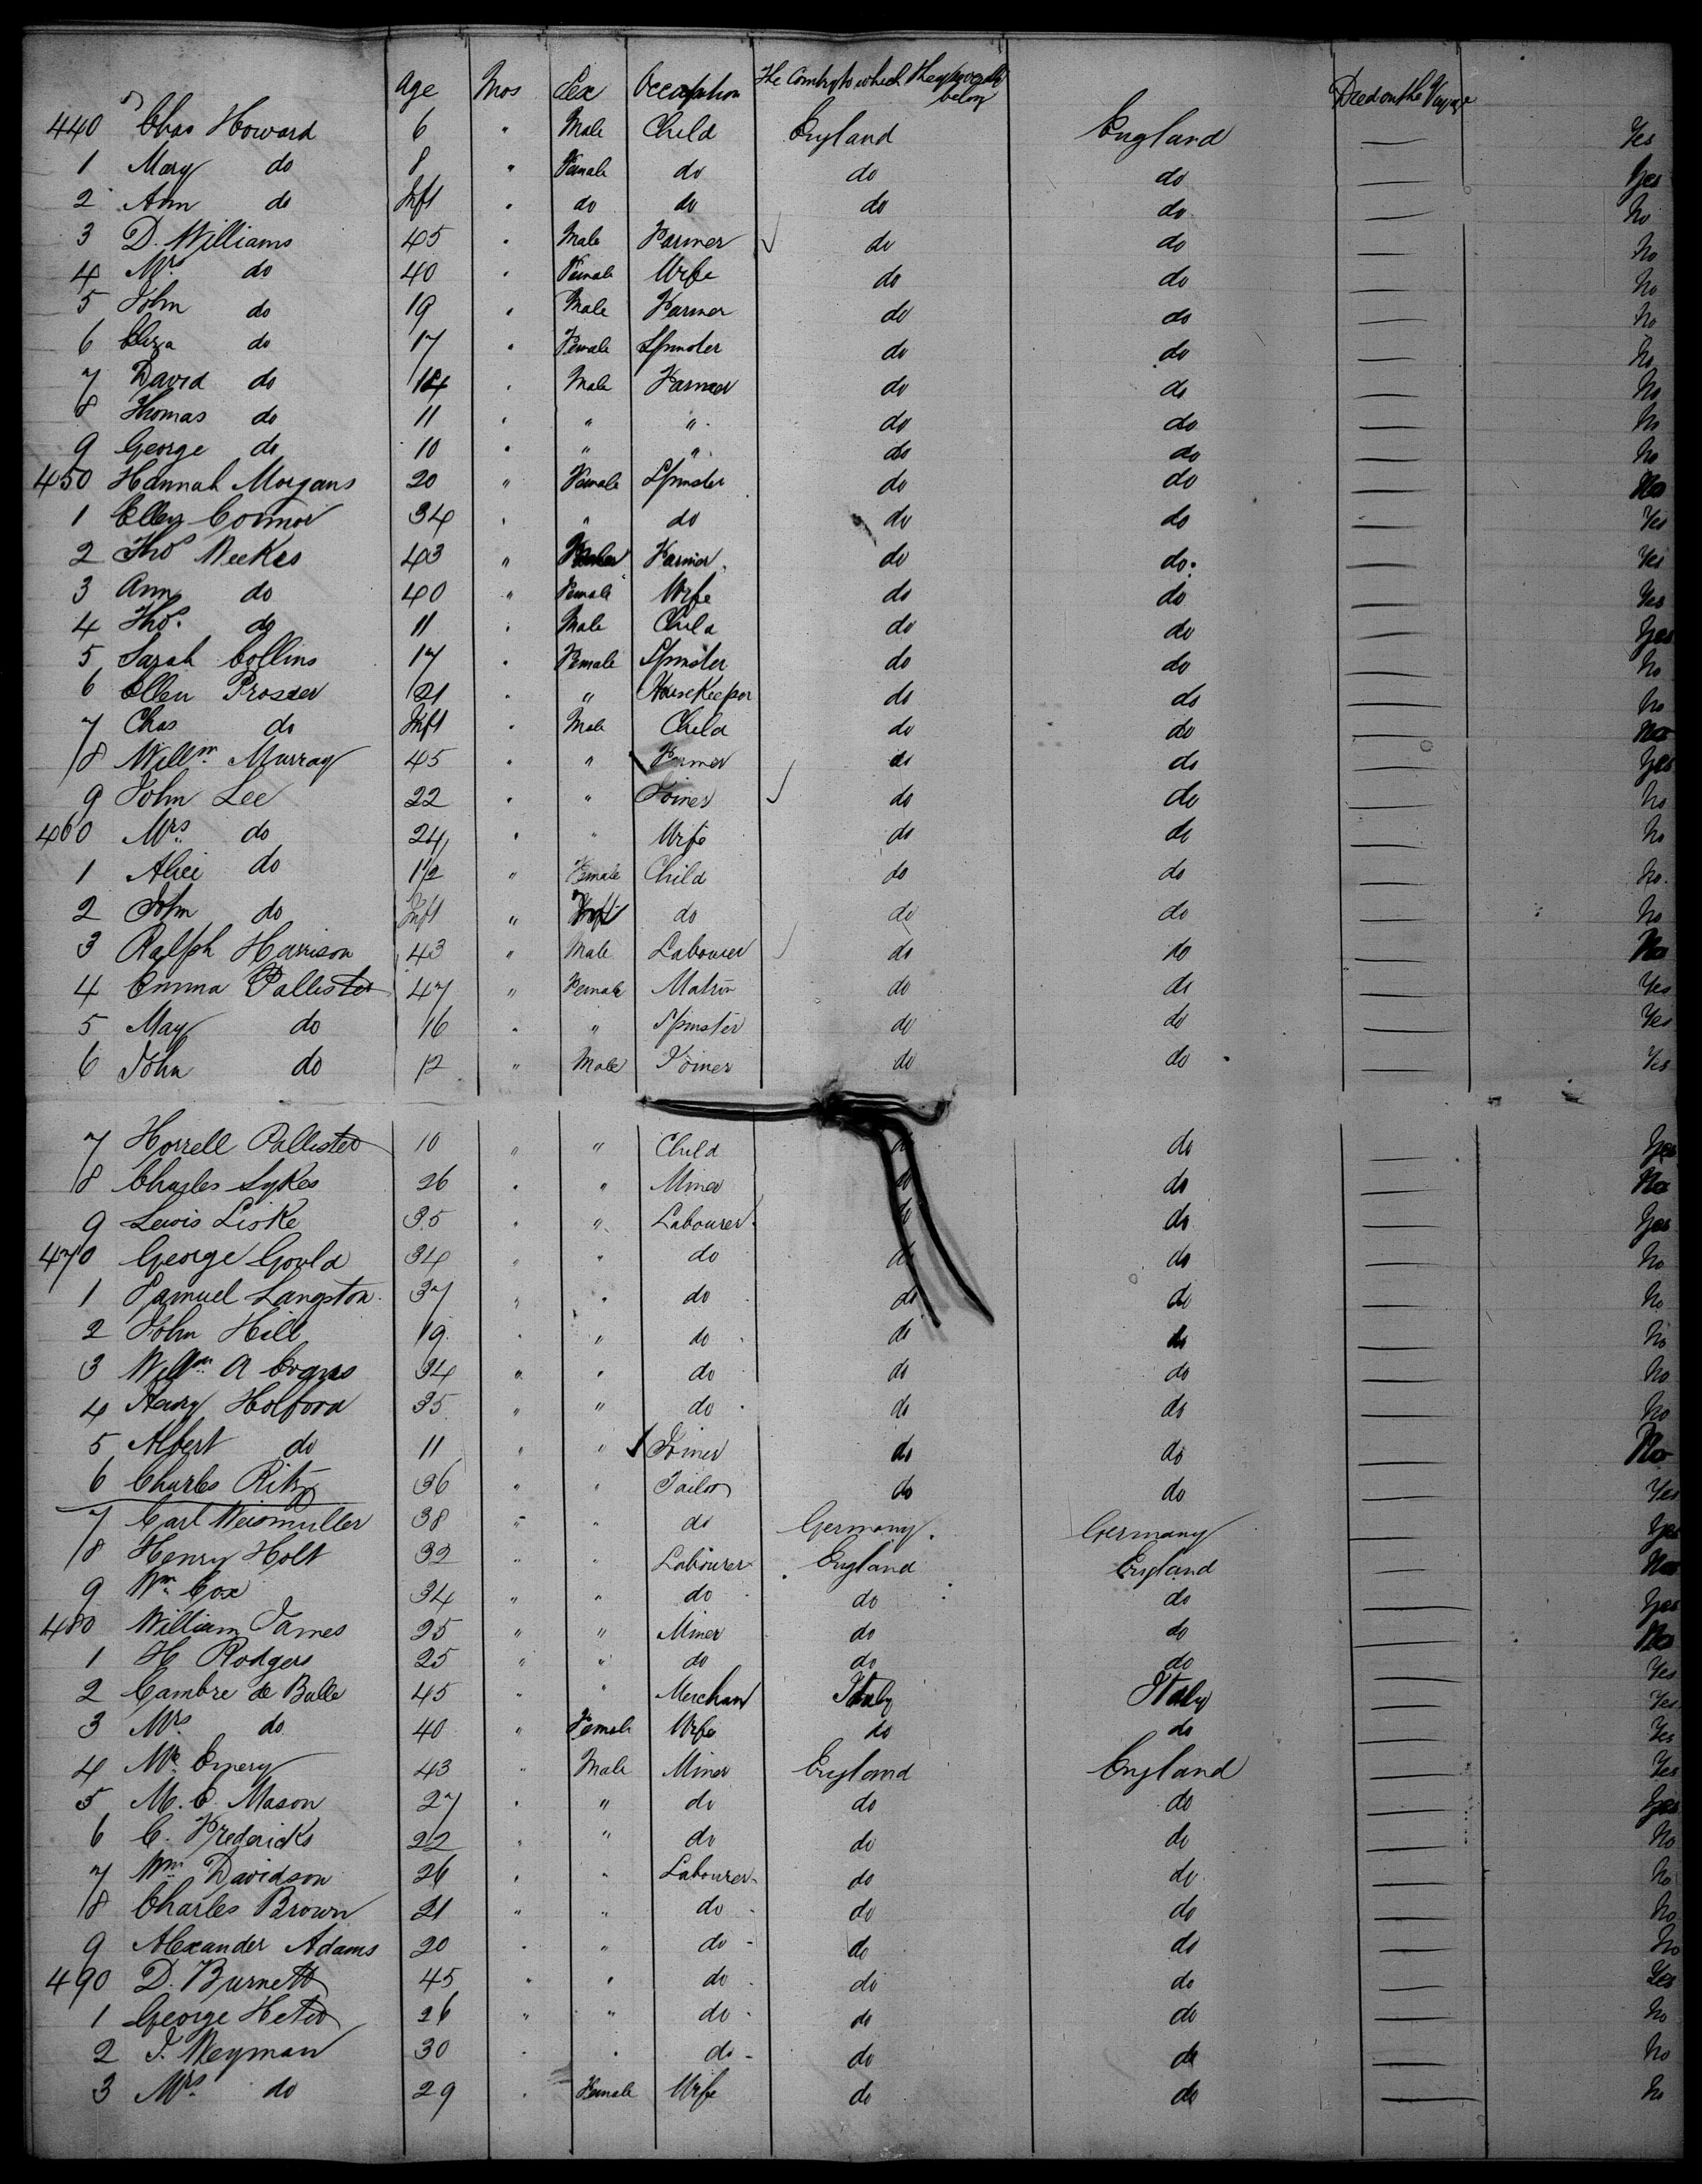 Age Mos Sex Occupation The Country to which they severally belong Died on the Voyage
440 Chas Howard 6 " Male Child England England — Yes
1 Mary do 8 " Female do do do — Yes
2 Ann do Inft " do do do do — No
3 D. Williams 45 " Male Farmer do do — No
4 Mrs do 40 " Female Wife do do — No
5 John do 19 " Male Farmer do do — No
6 Eliza do 17 " Female Spinster do do — No
7 David do 14 " Male Farmer do do — No
8 Thomas do 11 " " " do do — No
9 George do 10 " " " do do — No
450 Hannah Morgans 20 " Female Spinster do do — No
1 Ellen Connor 34 " " do do do — Yes
2 Thos Weekes 43 " Farmer do do — Yes
3 Ann do 40 " Female Wife do do — Yes
4 Thos. do 11 " Male Child do do — Yes
5 Sarah Collins 17 " Female Spinster do do — No
6 Ellen Prosser 21 " " Housekeeper do do — No
7 Chas do Inft " Male Child do do — No
8 Willm Murray 45 " " Farmer do do — Yes
9 John Lee 22 " " Joiner do do — No
460 Mrs do 24 " " Wife do do — No
1 Alice do 1/2 " Female Child do do — No
2 John do Inft " do do do — No
3 Ralph Harrison 43 " Male Labourer do do — No
4 Emma Pallister 47 " Female Matron do do — Yes
5 May do 16 " " Spinster do do — Yes
6 John do 12 " Male Joiner do do — Yes
7 Horrell Pallister 10 " " Child do do — Yes
8 Charles Sykes 26 " " Miner do do — No
9 Lewis Liske 35 " " Labourer do do — Yes
470 George Gould 34 " " do do do — No
1 Samuel Langston 37 " " do do do — No
2 John Hill 19 " " do do do — No
3 Willm A Evans 34 " " do do do — No
4 Harry Holford 35 " " do do do — No
5 Albert do 11 " " Joiner do do — No
6 Charles Ritz 36 " " Tailor do do — Yes
7 Carl Weismuller 38 " " do Germany Germany — Yes
8 Henry Holt 32 " " Labourer England England — No
9 Wm Cox 34 " " do do do — Yes
480 William James 25 " " Miner do do — No
1 H Rodgers 25 " " do do do — Yes
2 Cambre de Balle 45 " " Merchant Italy Italy — Yes
3 Mrs do 40 " Female Wife do do — Yes
4 Mr Emery 43 " Male Miner England England — Yes
5 M. C. Mason 27 " " do do do — Yes
6 C. Fredericks 22 " " do do do — No
7 Wm Davidson 26 " " Labourer do do — No
8 Charles Brown 21 " " do do do — No
9 Alexander Adams 20 " " do do do — No
490 D. Burnett 45 " " do do do — Yes
1 George Heter 26 " " do do do — No
2 J. Weyman 30 " " do do do — No
3 Mrs do 29 " Female Wife do do — No